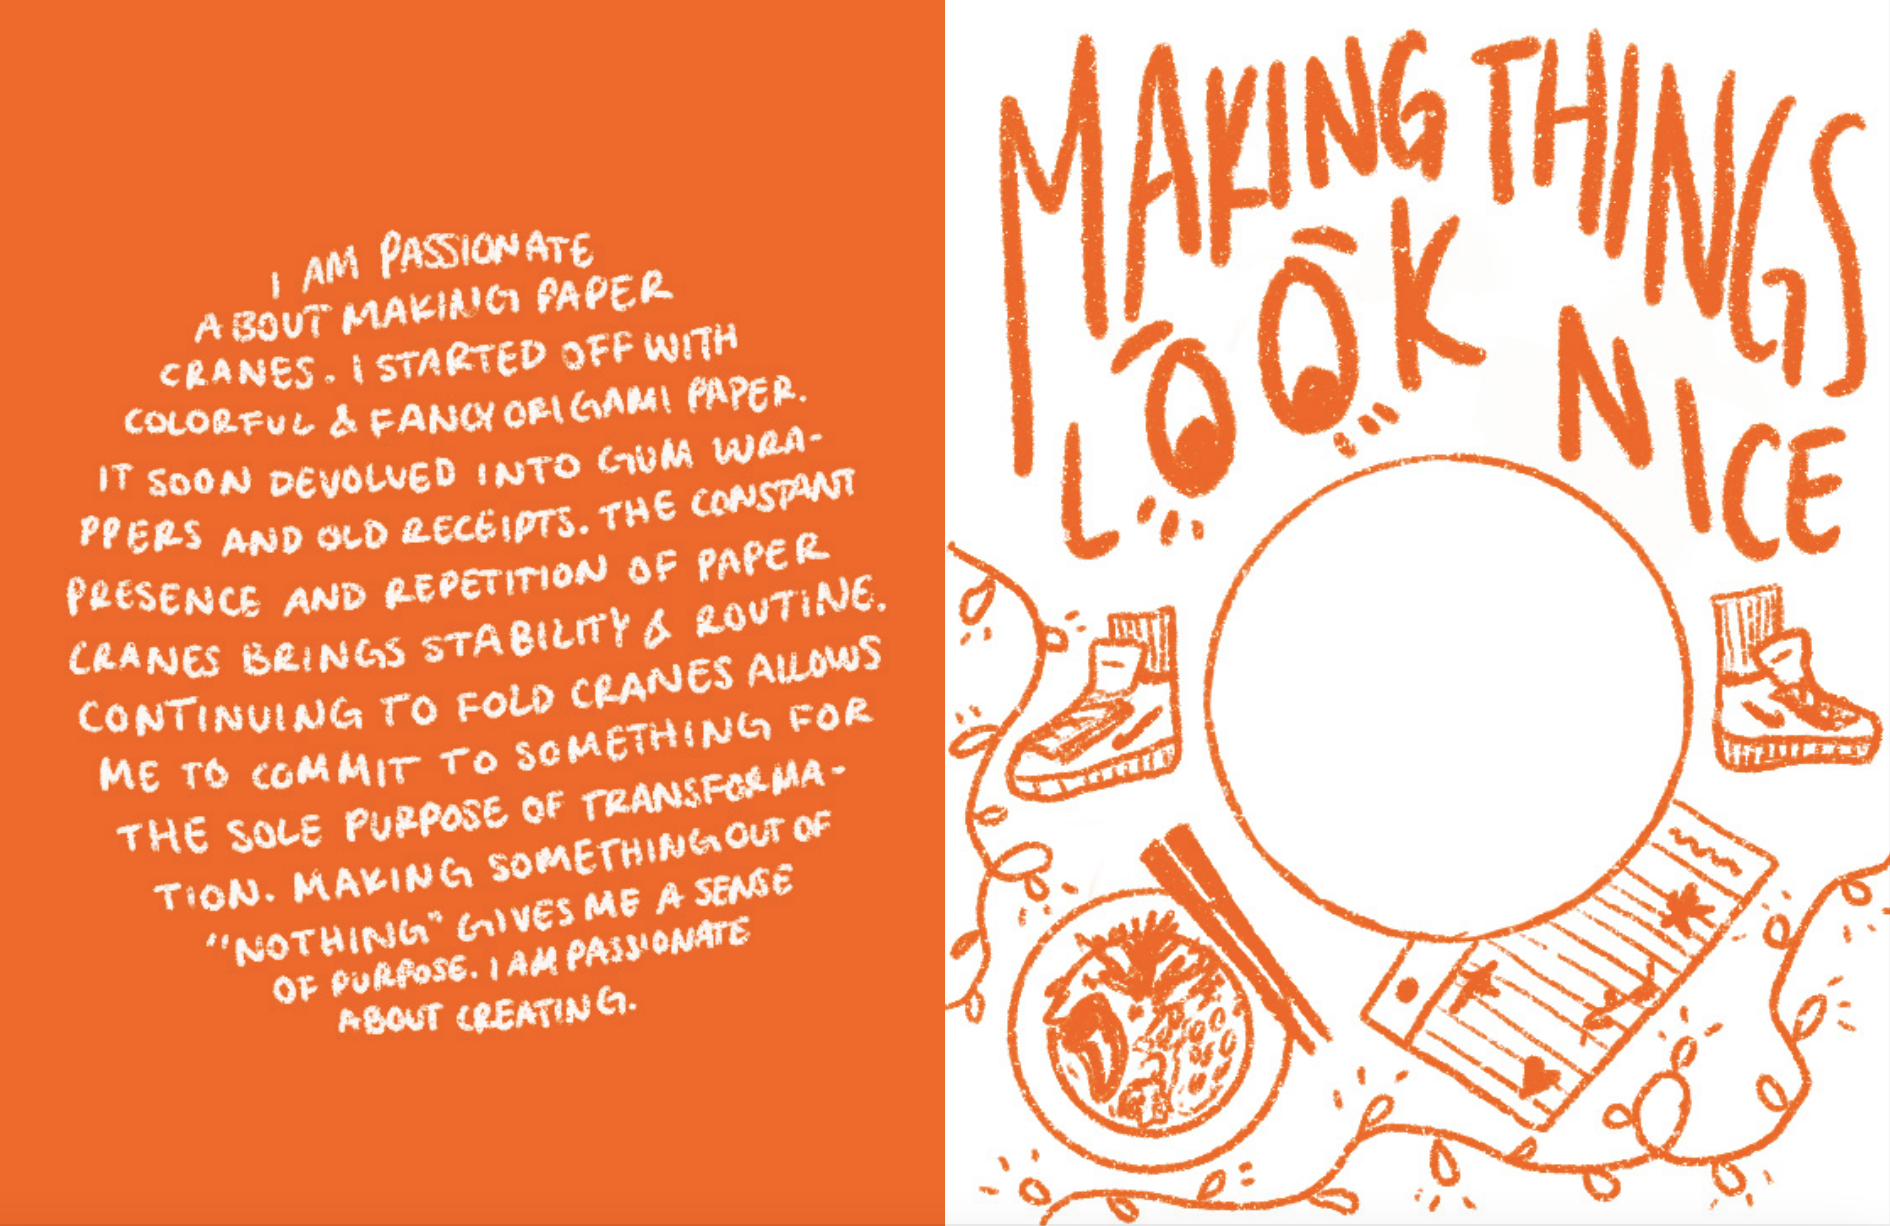 I AM PASSIONATE
ABOUT MAKING PAPER
CRANES. I STARTED OFF WITH
COLORFUL & FANCY ORIGAMI PAPER.
IT SOON DEVOLVED INTO GUM WRA-
PPERS AND OLD RECEIPTS. THE CONSTANT
PRESENCE AND REPETITION OF PAPER
CRANES BRINGS STABILITY & ROUTINE.
CONTINUING TO FOLD CRANES ALLOWS
ME TO COMMIT TO SOMETHING FOR
THE SOLE PURPOSE OF TRANSFORMA-
TION. MAKING SOMETHING OUT OF
"NOTHING" GIVES ME A SENSE
OF PURPOSE. I AM PASSIONATE
ABOUT CREATING.
MAKING THINGS
LOOK NICE